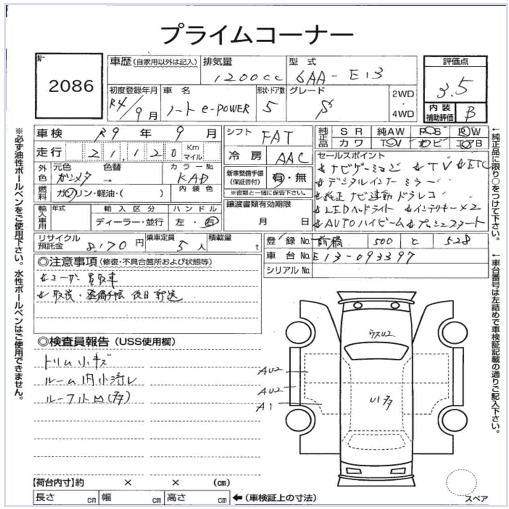 プライムコーナー
№
2086
車歴(自家用以外は記入)
排気量
1200cc
型式
6AA-E13
評価点
3.5
初度登録年月
R4/9月
車名
ノートe-POWER
形状・ドア数
5
グレード
S
2WD
・
4WD
内装
補助評価
B
※必ず油性ボールペンをご使用下さい。水性ボールペンはご使用できません。
車検
R9年9月
シフト
FAT
純正品
SR
純AW
PS
PW
カワ
TV
ナビ
エアB
走行
21,120
Km
マイル
冷房
AAC
セールスポイント
ナビゲーション
TV
ETC
デジタルインナーミラー
純正ナビ連動ドラレコ
LEDヘッドライト
インテリキーX2
AUTOハイビーム
プッシュスタート
←純正品に限り○をつけて下さい。
外色
元色
ガンメタ
色替
カラー№
KAD
燃料
ガソリン・軽油・( )
内装色
新車整備手帳
(保証書付)
有・無
※書類と一緒に保管して下さい。
輸入車用
年式
輸入区分
ハンドル
ディーラー・並行
左・右
譲渡書類有効期限
月 日
リサイクル
預託金
8,170円
乗車定員
5人
積載量
t
登録№
前橋 500 と 528
車台№
E13-093397
シリアル№
←車台番号は左詰めで車検証記載の通りご記入下さい。
◎注意事項(修復・不具合箇所および状態等)
ユーザー買取車
取説・整備手帳 後日郵送
◎検査員報告(USS使用欄)
トリム小キズ
ルーム内小汚レ
ルーフ小凹(多)
ウスU2
AU2
AU2
A1
U1多
【荷台内寸】約 × × (cm)
長さ cm 幅 cm 高さ cm ←(車検証上の寸法)
スペア